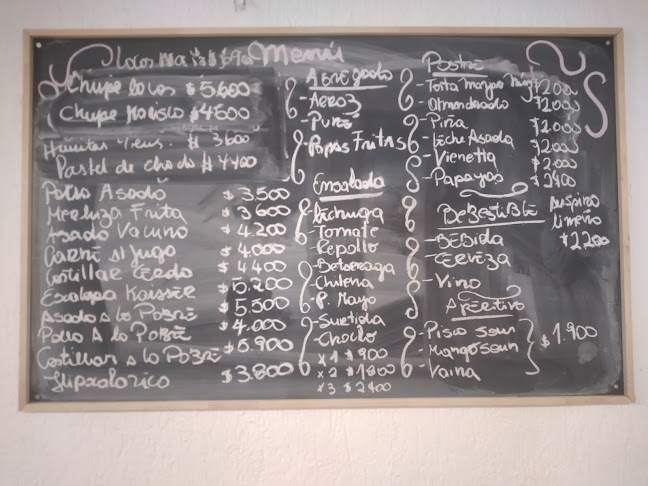 Locos Ma
Menú
Chupe locos $5.600
Chupe Marisco $4.500
Humitas $3.600
Pastel de choclo $4.400
Pollo Asado $3.500
Merluza Frita $3.600
Asado Vacuno $4.200
Carne s/ Jugo $4.000
Costillar Cerdo $4.400
Escalopa Kaiser $5.200
Asado a lo Pobre $5.500
Pollo A lo Pobre $4.000
Costillar a lo Pobre $5.900
Hipocalorico $3.800
Agregado
-Arroz
-Puré
-Papas Fritas
Ensalada
-Lechuga
-Tomate
-Repollo
-Betarraga
-Chilena
-P. Mayo
-Surtida
-Choclo
x1 $900
x2 $1800
x3 $2400
Postre
-Torta $2000
-Almendrado $2000
-Piña $2.000
-Leche Asada $2.000
-Vienetta $2000
-Papayas $2400
Suspiro
limeño
$2200
Bebestible
-Bebida
-Cerveza
-Vino
Aperitivo
-Pisco sour
-Mango sour
-Vaina
$1.900